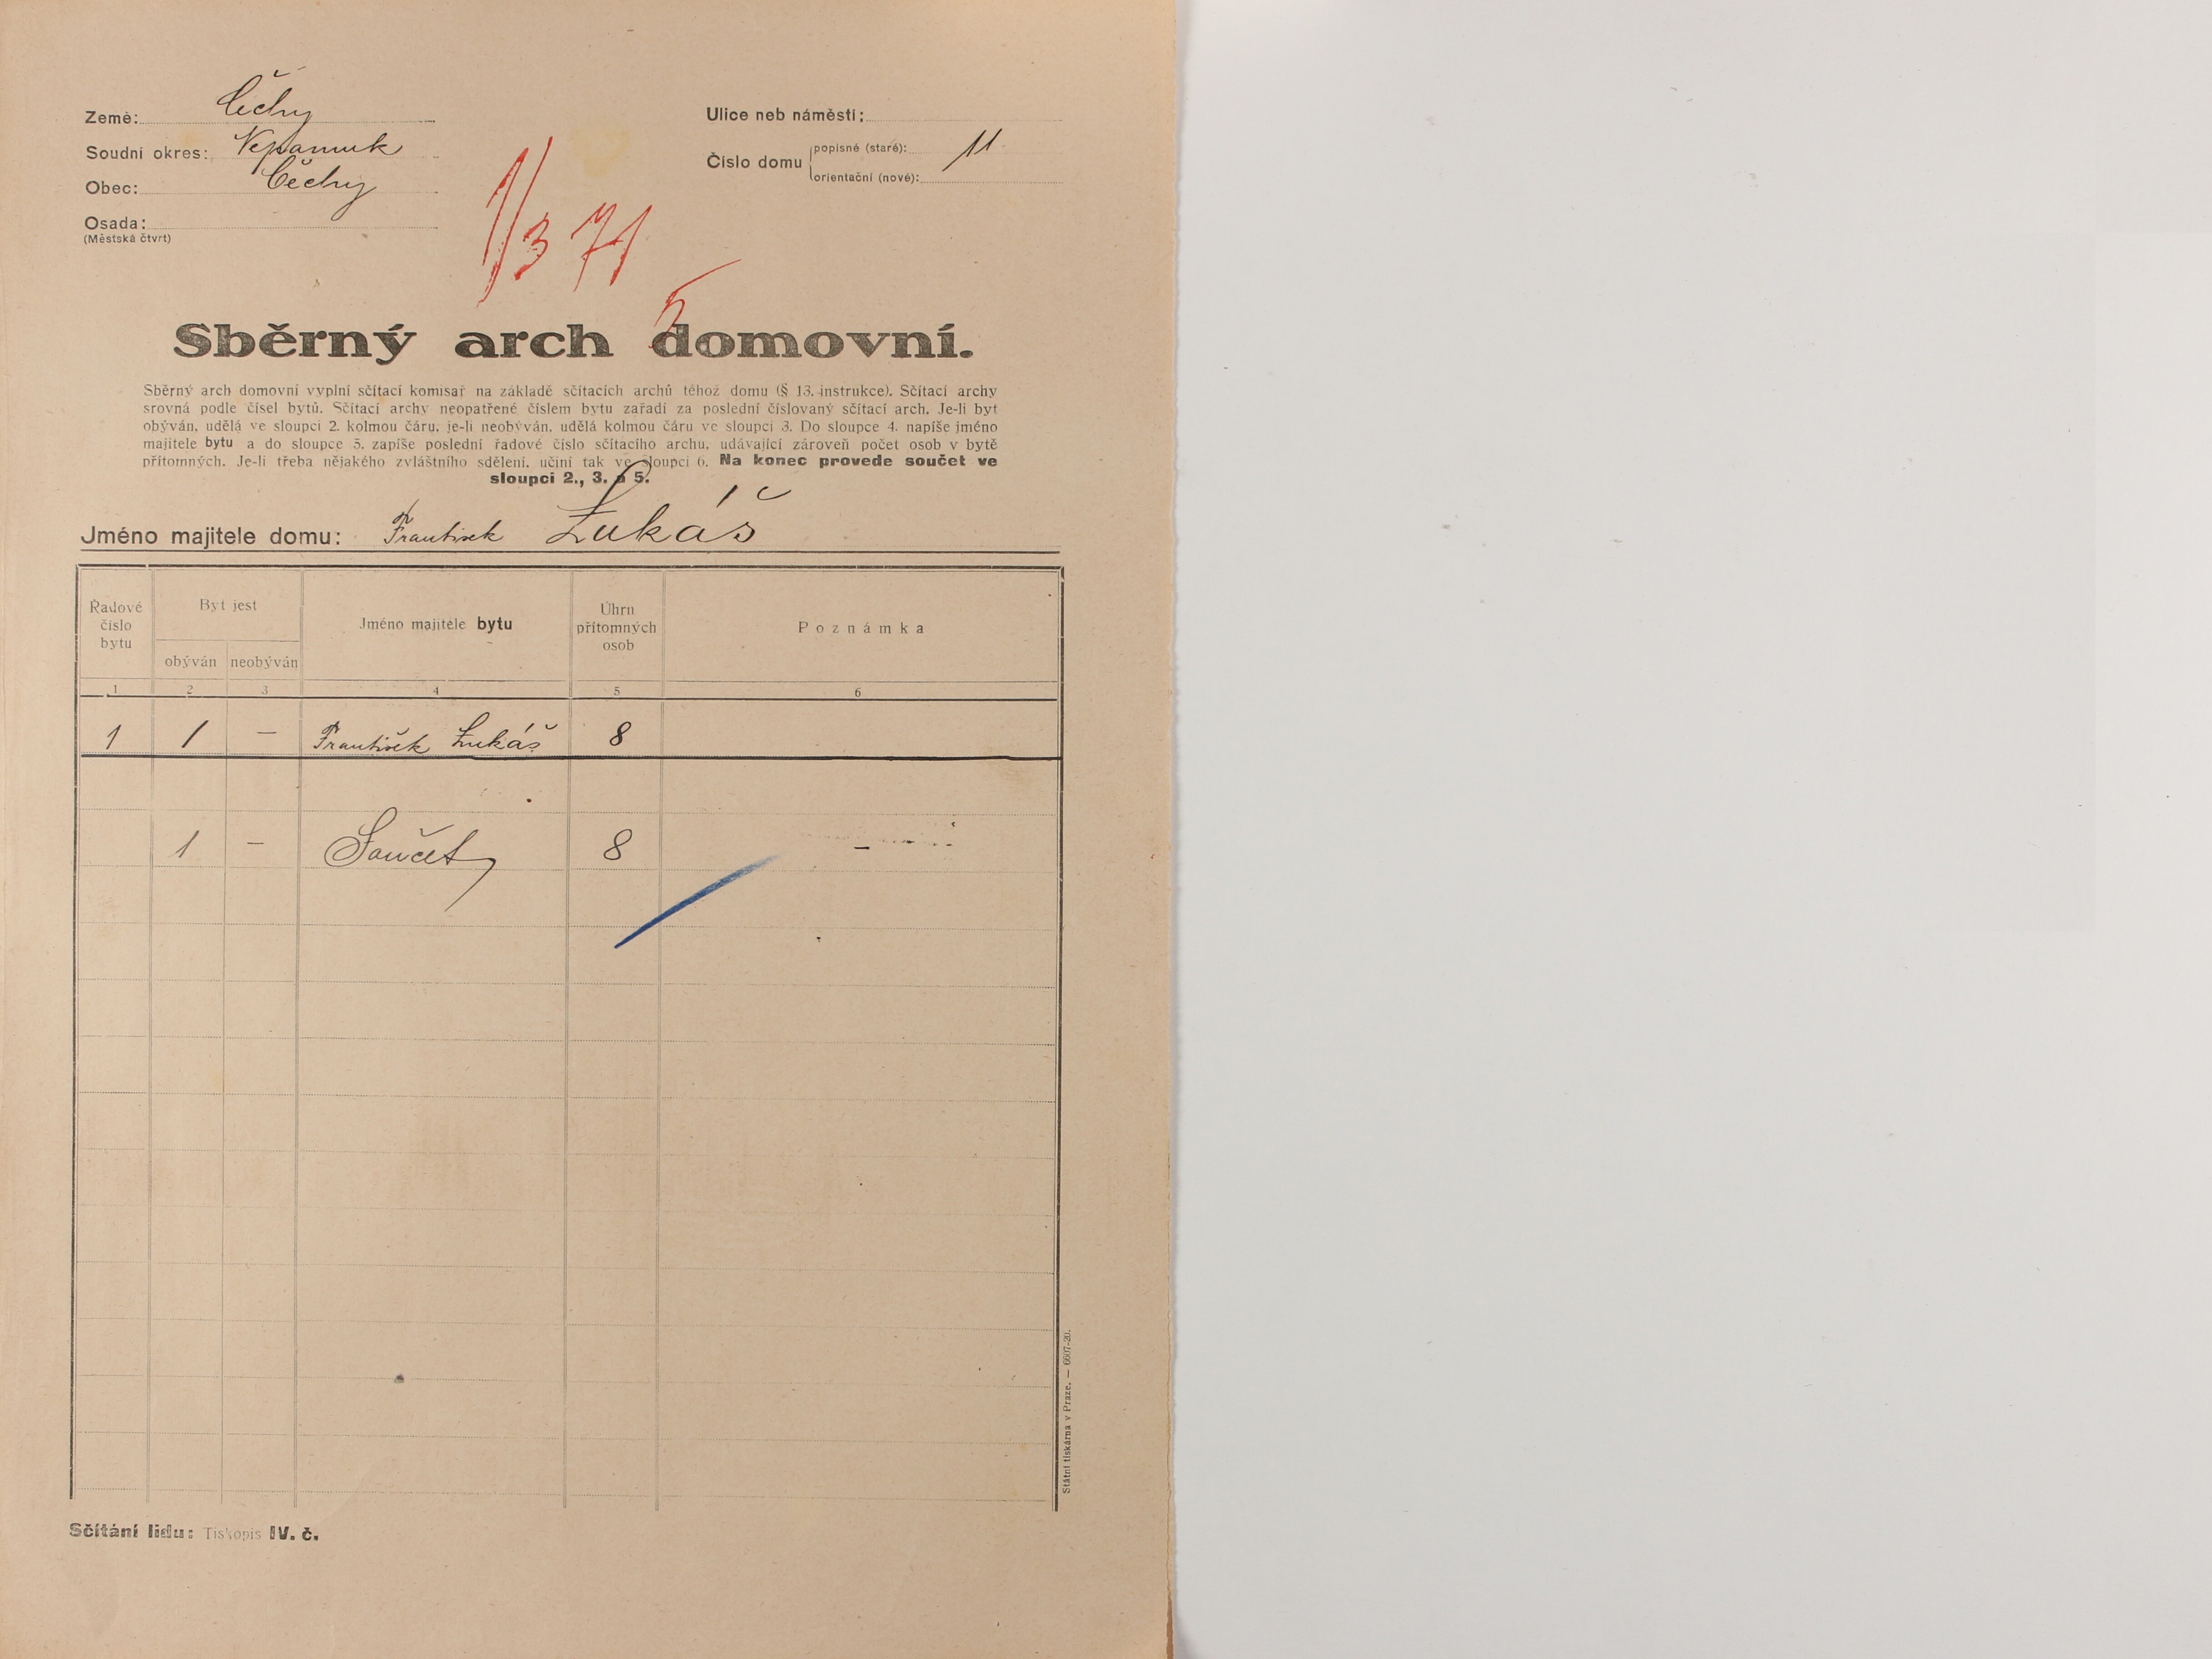 Země: Čechy
Soudní okres: Nepomuk
Obec: Čechy
Osada:
(Městská čtvrt)
Ulice neb náměstí:
Číslo domu popisné (staré): 11
orientační (nové):
1/3 71
5
Sběrný arch domovní.
Sběrný arch domovní vyplní sčítací komisař na základě sčítacích archů téhož domu (§ 13. instrukce). Sčítací archy
srovná podle čísel bytů. Sčítací archy neopatřené číslem bytu zařadí za poslední číslovaný sčítací arch. Je-li byt
obýván, udělá ve sloupci 2. kolmou čáru, je-li neobýván, udělá kolmou čáru ve sloupci 3. Do sloupce 4. napíše jméno
majitele bytu a do sloupce 5. zapíše poslední řadové číslo sčítacího archu, udávající zároveň počet osob v bytě
přítomných. Je-li třeba nějakého zvláštního sdělení, učiní tak ve sloupci 6. Na konec provede součet ve
sloupci 2., 3. a 5.
Jméno majitele domu: František Lukáš
Řadové číslo bytu
Byt jest
obýván neobýván
Jméno majitele bytu
Úhrn přítomných osob
Poznámka
1 2 3 4 5 6
1 1 — František Lukáš 8
1 — Součet 8 —
Státní tiskárna v Praze. — 6607-20.
Sčítání lidu: Tiskopis IV. č.